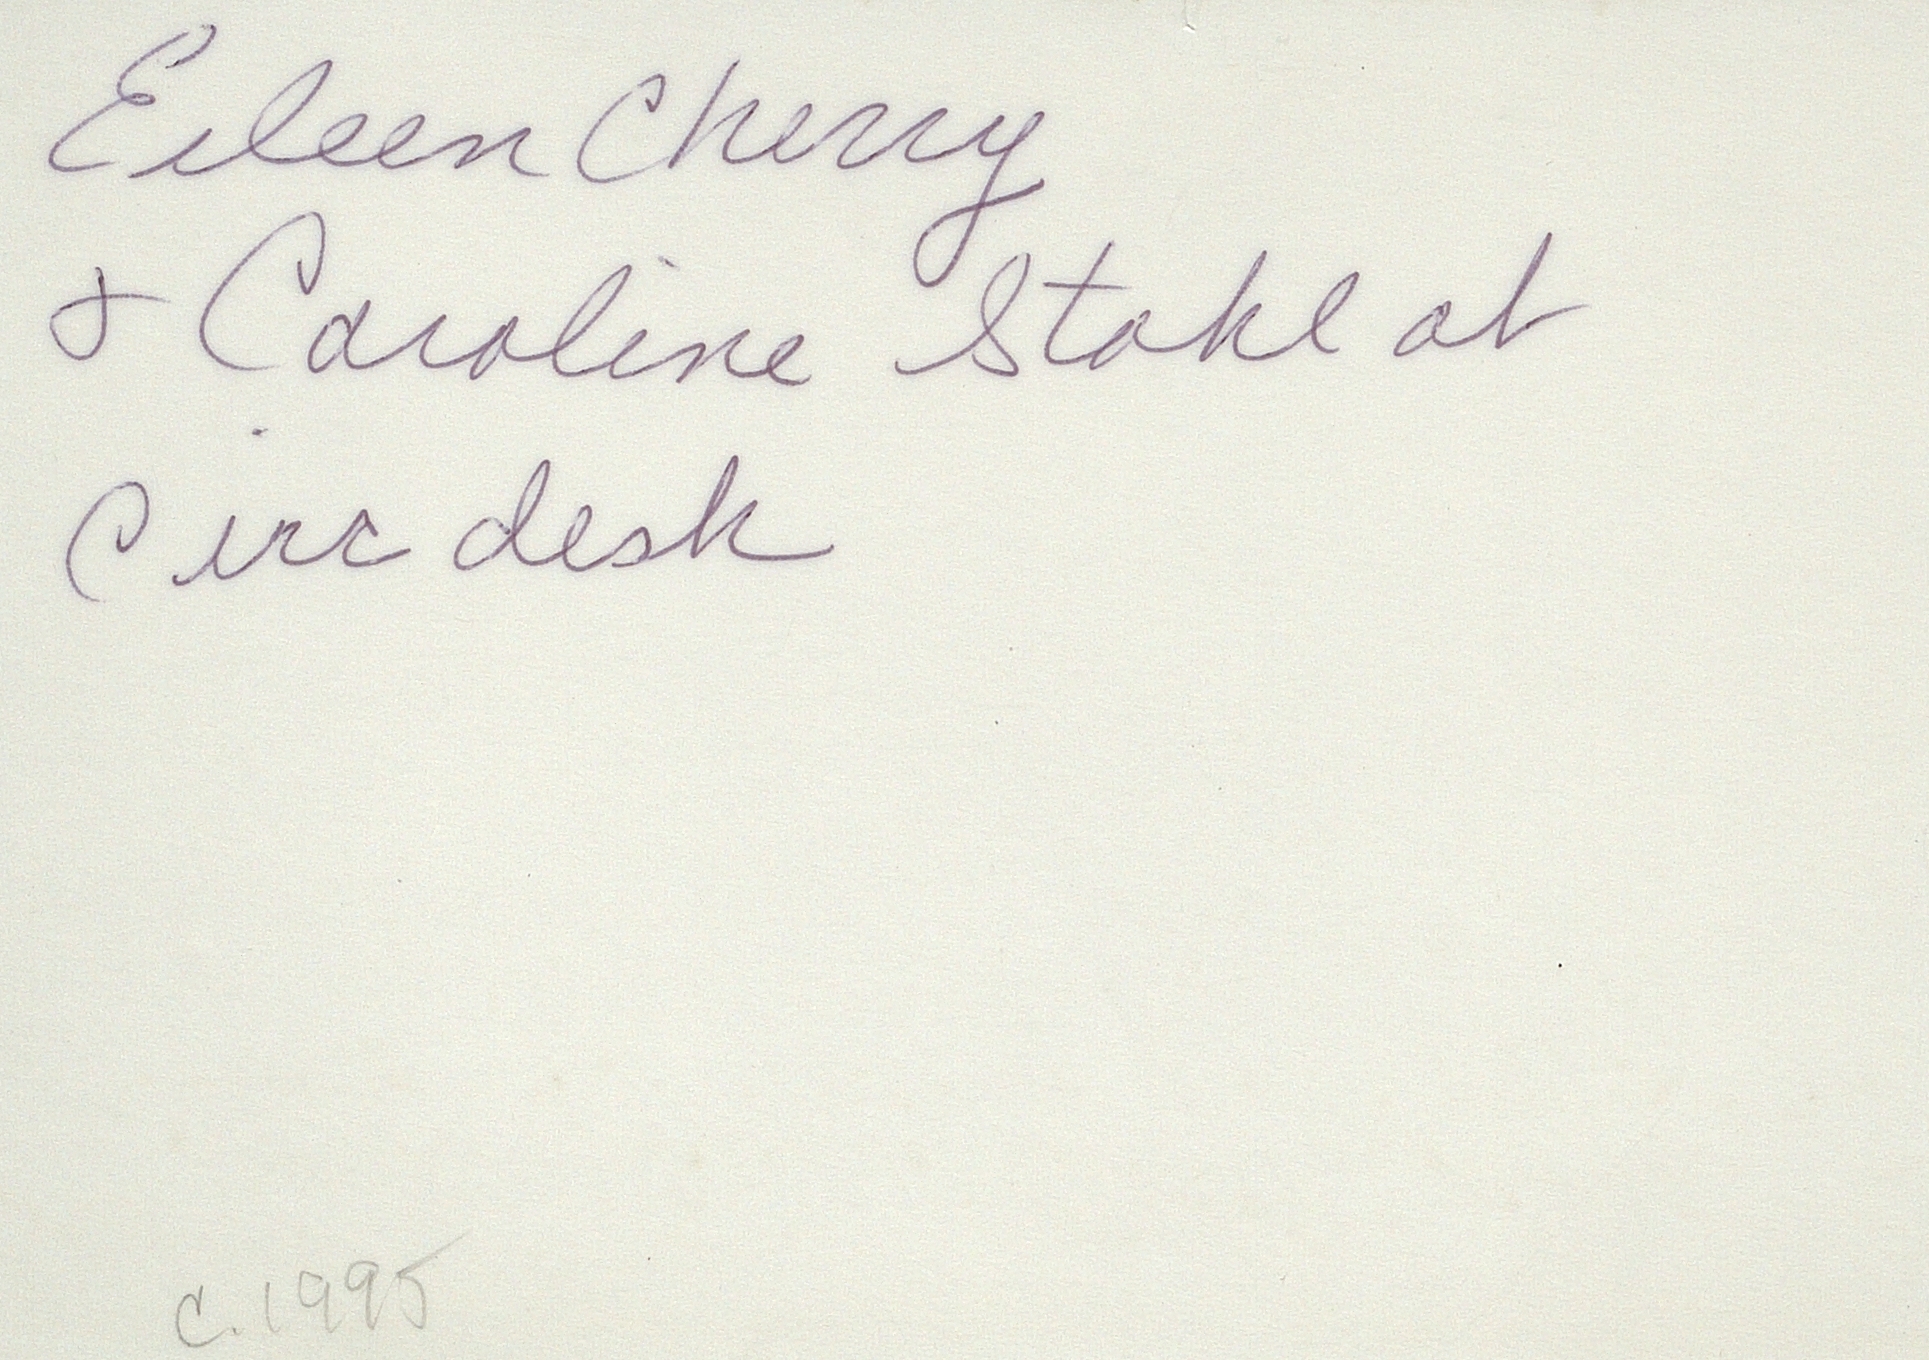 Eileen Cherry
& Caroline Stahl at
Circ desk
c. 1995